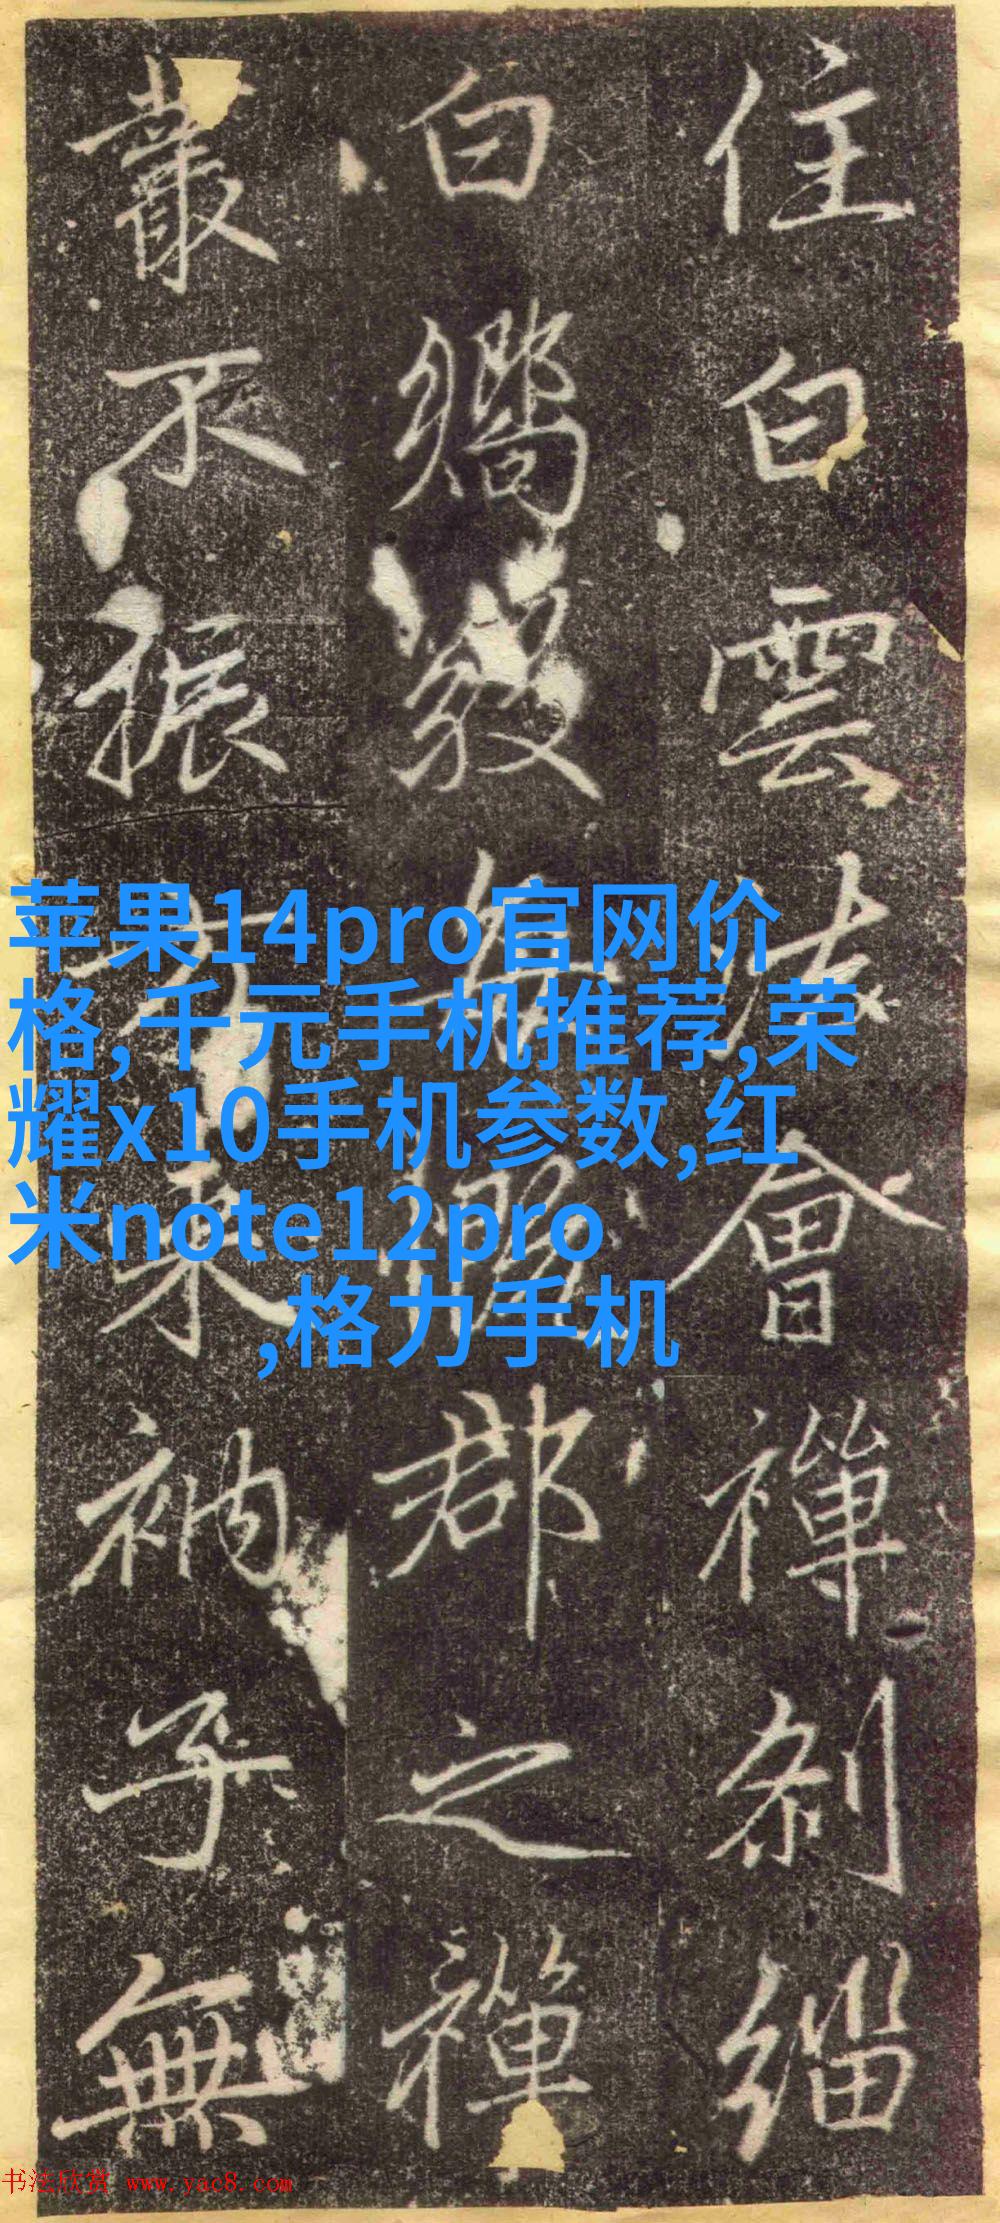 住白雲法會禪刹緇
白
每
郡之禪
叢不振
方來衲子無
苹果14pro官网价
格,千元手机推荐,荣
耀x10手机参数,红
米note12pro
,格力手机
书法欣赏 www.yac8.com